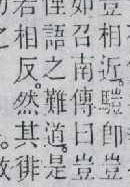 相近。卽豈
如召南傳曰豈
語之難道。是
若相反。然其徘
之。故